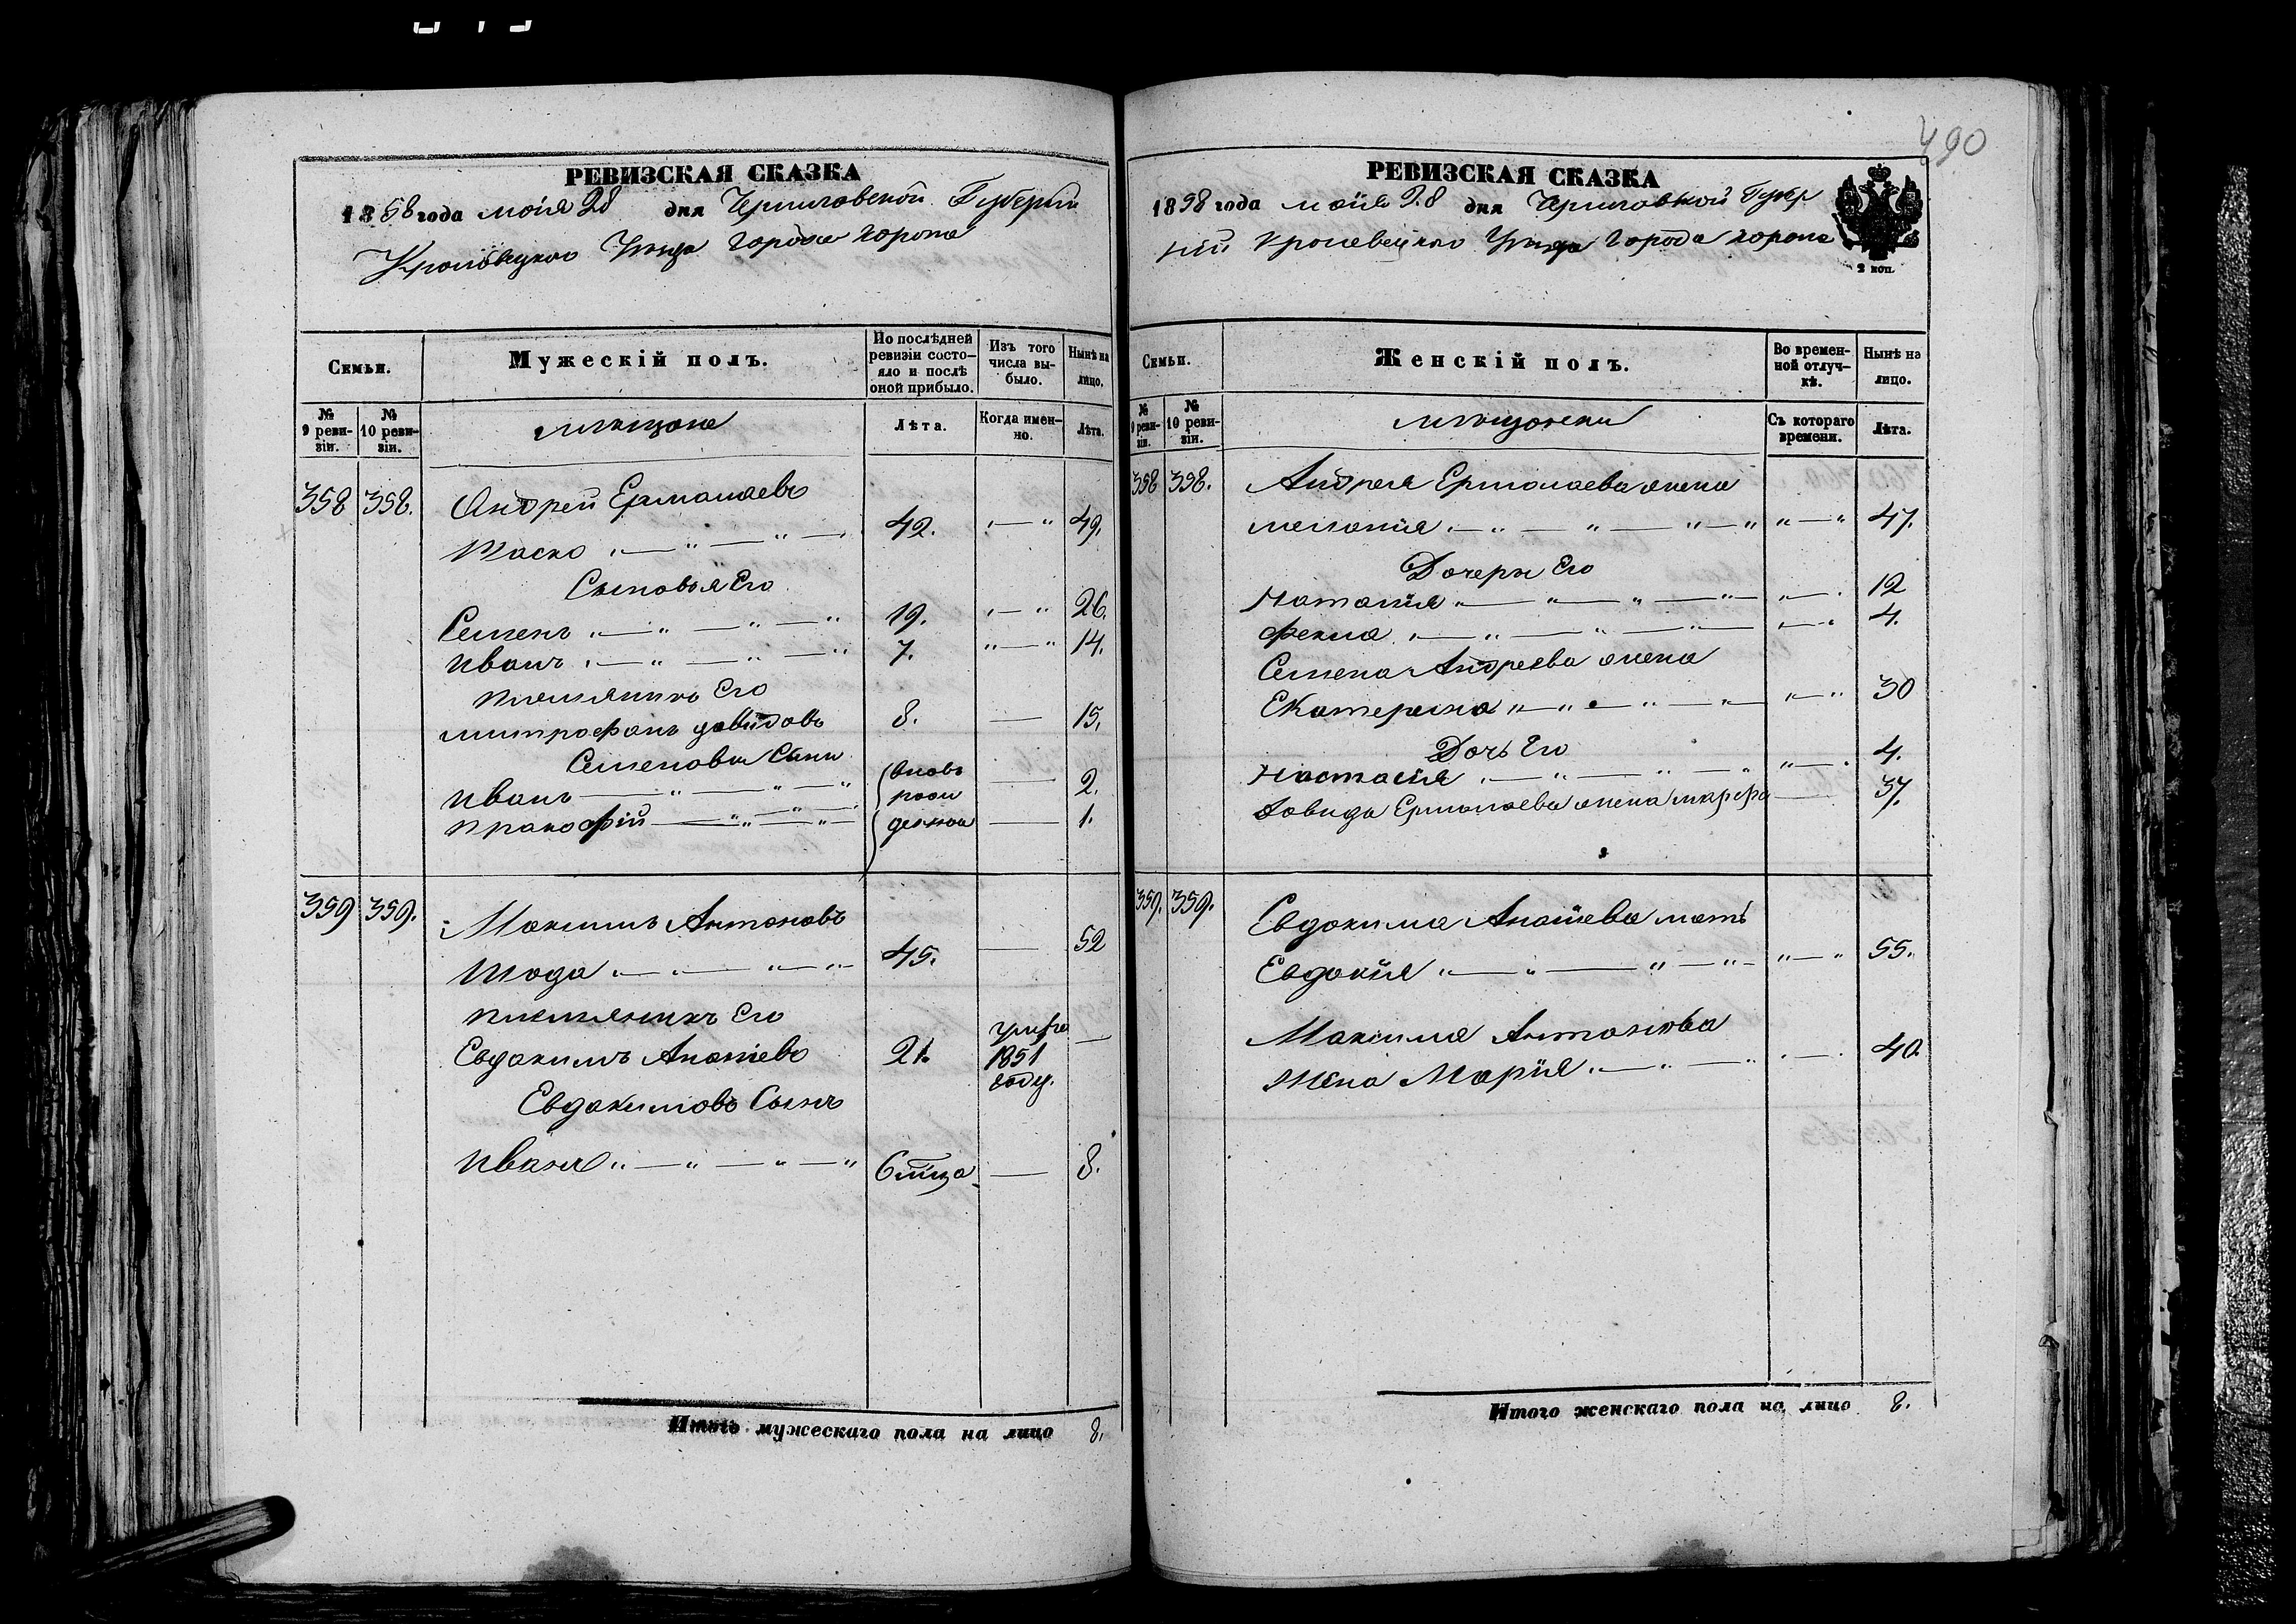 490
РЕВИЗСКАЯ СКАЗКА
1858 года маія 28 дня Черниговской Губерніи
Кролевецкого Уезда Города Коропа
Семьи.
Мужескій полъ.
По послѣдней ревизіи состояло и послѣ оной прибыло.
Изъ того числа выбыло.
Нынѣ на лицо.
№ 9 ревизіи.
№ 10 ревизіи.
мещане
Лѣта.
Когда именно.
Лѣта.
358 358. Андрей Ермолаевъ
42. 49.
Сыновья Его
Семенъ 19. 26.
Иванъ 7. 14.
племянникъ Его
митрофанъ давидовъ 8. 15.
Семеновы Сыны
Иванъ вновь 2.
рож
Пракофій денные 1.
359 359. Максимъ Антоновъ
45. 52
племянникъ Его
Евдокимъ Ананіевъ 21. умре 1851 году.
Евдокимовъ Сынъ
Иванъ 6 мца 8.
Итого мужескаго пола на лицо 8.
РЕВИЗСКАЯ СКАЗКА
1858 года маія 28 дня Черниговской Губер
ніи Кролевецкого Уезда Города Коропа
2 коп.
Семьи.
Женскій полъ.
Во временной отлучкѣ.
Нынѣ на лицо.
№ 9 ревизіи.
№ 10 ревизіи.
мещанки
Съ котораго времени.
Лѣта.
358 358. Андрея Ермолаева жена
меланія 47.
Дочери Его
Наталія 12
Фекла 4.
Семена Андреева жена
Екатерина 30
Дочь Его
Настасія 4.
Давида Ермолаева жена марфа 37.
359. 359. Евдокима Ананіева мать
Евдокія 55.
Максима Антонова
Жена Марія 40
Итого женскаго пола на лицо 8.